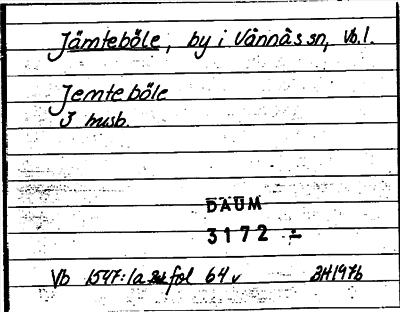 Jämteböle, by i Vännäs sn, Vb. l.
Jemteböle
3 husb.
DAUM
3172 -
Vb 1547:1a fol 64 v BH 1976